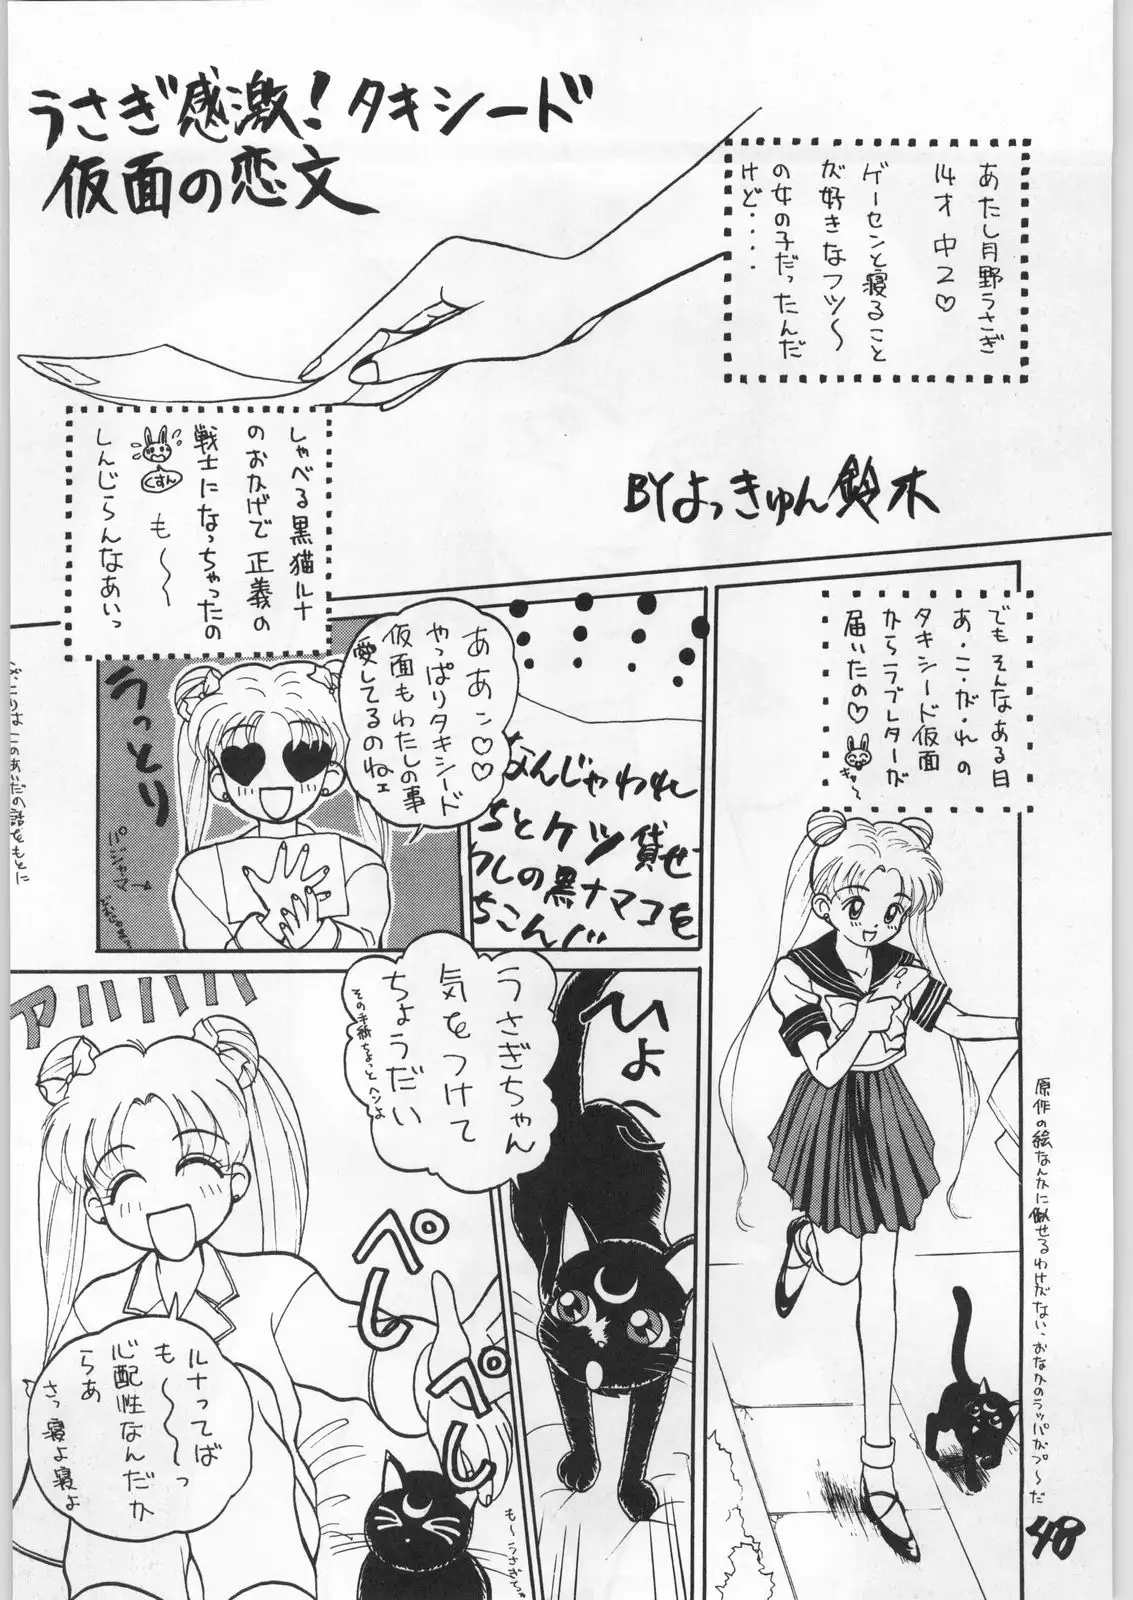 うさぎ感激！タキシード
仮面の恋文
あたし月野うさぎ
14才 中2♡
ゲーセンと寝ること
が好きなフツ〜
の女の子だったんだ
けど・・・・
しゃべる黒猫ルナ
のおかげで正義の
戦士になっちゃったの
くすん
も〜〜
しんじらんなあいっ
BYよっきゅん鈴木
でもそんなある日
あ・こ・が・れの
タキシード仮面
からラブレターが
届いたの♡
きゃ〜
原作の絵なんかに似せるわけがない、おなかのラッパがプ〜だ
なんじゃわれ
ちとケツ貸せ
ワしの黒ナマコを
ちこんバ
ああン♡♡
やっぱりタキシード
仮面もわたしの事
愛してるのねェ
うっとり
パジャマ→
このあいだの話をもとに
ひょい
うさぎちゃん
気をつけて
ちょうだい
その手紙ちょっとヘンよ
アハハハハ
ペしペし
ルナってば
も〜〜っ
心配性なんだか
らあ
さっ寝よ寝よ
も〜うさぎちゃん
48